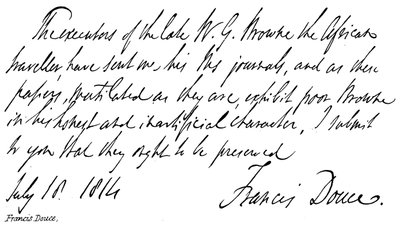 The executors of the late W. G. Browne the African
traveller have sent me his MS journals, and as these
papers, mutilated as they are, exhibit poor Browne
in his honest and inartificial character, I submit
to you that they ought to be preserved
July 18. 1814
Francis Douce.
Francis Douce,